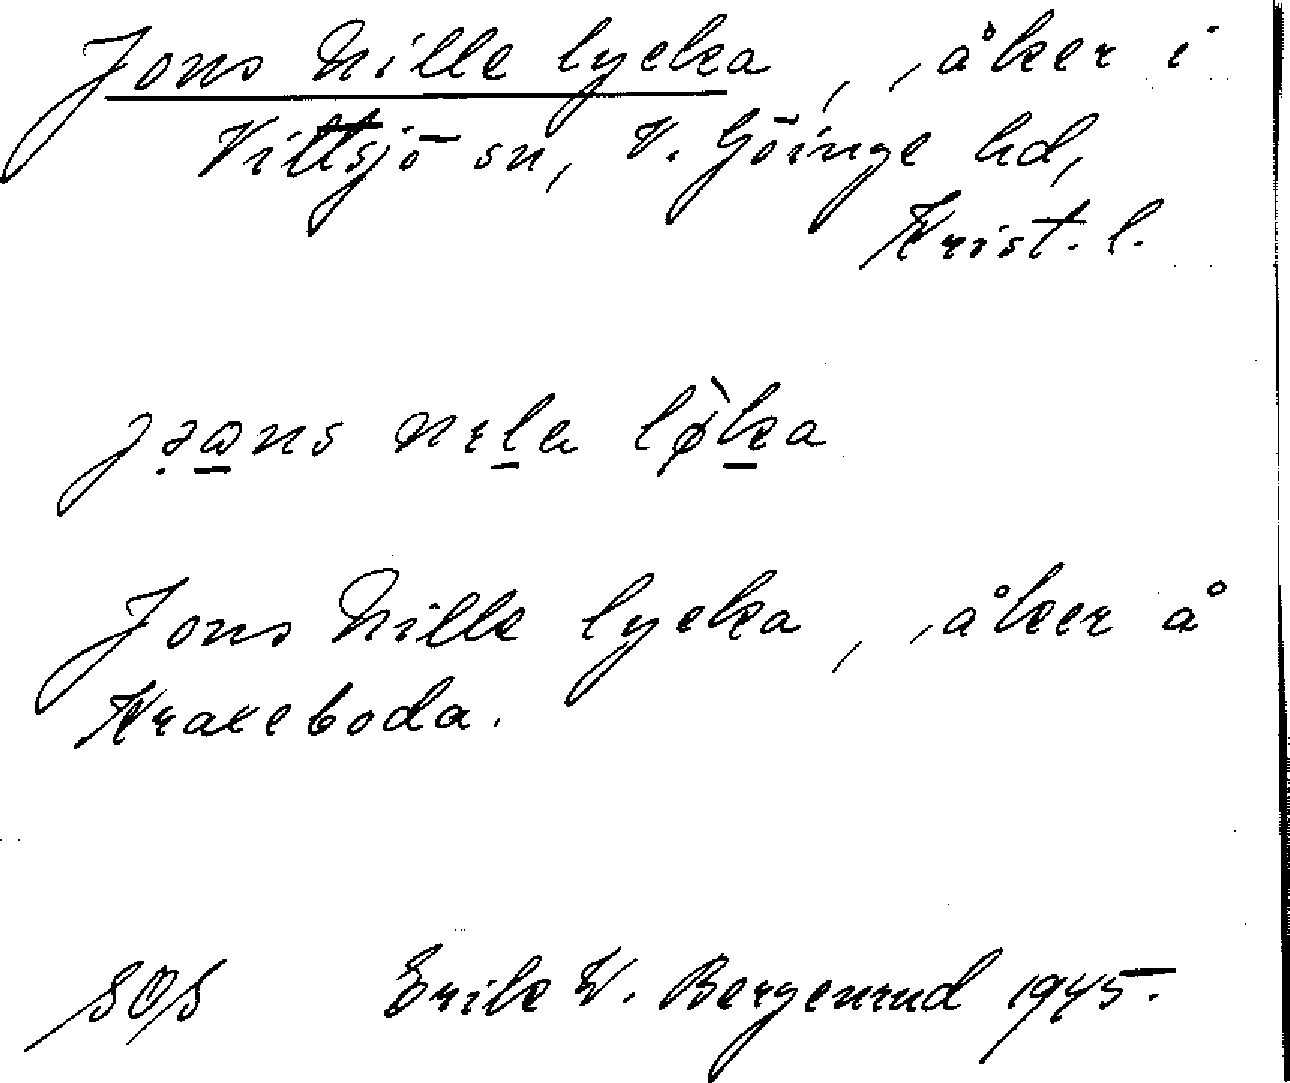 Jons Nille lycka, åker i
Vittsjö sn, V. Göinge hd,
Krist. l.
jəans nɪla lø̀ka
Jons Nille lycka, åker å
Krareboda.
SOS Erik W. Bergenrud 1945.